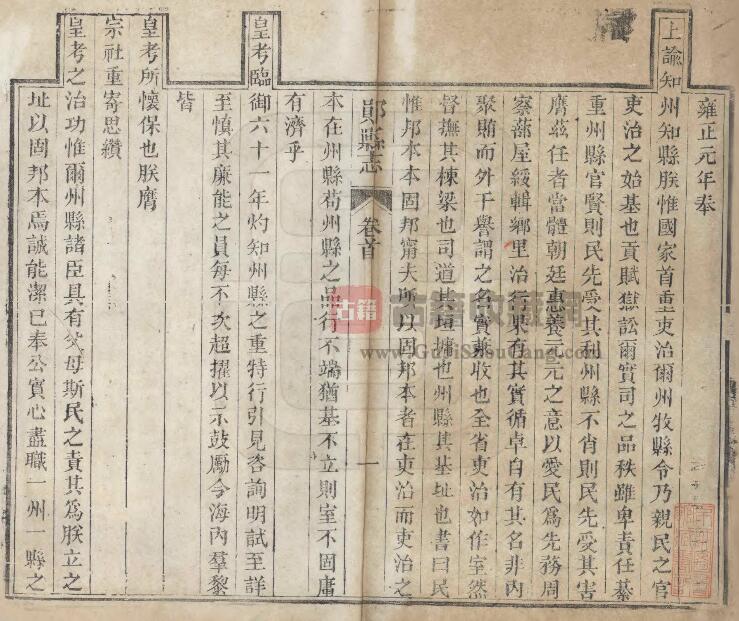 雍正元年奉
上諭知州知縣朕惟國家首重吏治爾州牧縣令乃親民之官
吏治之始基也貢賦獄訟爾實司之品秩雖卑責任綦
重州縣官賢則民先受其利州縣不肖則民先受其害
膺茲任者當體朝廷惠養元元之意以愛民為先務周
察蔀屋綏輯鄉里治行果有其實循卓自有其名非內
聚賄而外干譽謂之名實兼收也全省吏治如作室然
督撫其棟梁也司道其垣墉也州縣其基址也書曰民
惟邦本本固邦甯夫所以固邦本者在吏治而吏治之
鄖縣志
卷首
一
本在州縣苟州縣之品行不端猶基不立則室不固庸
有濟乎
皇考臨御六十一年灼知州縣之重特行引見咨詢明試至詳
至慎其廉能之員每不次超擢以示鼓勵今海內羣黎
皆
皇考所懷保也朕膺
宗社重寄思纘
皇考之治功惟爾州縣諸臣具有父母斯民之責其為朕立之
址以固邦本焉誠能潔已奉公實心盡職一州一縣之
古籍
古籍收藏網
www.GuJiShouCang.com